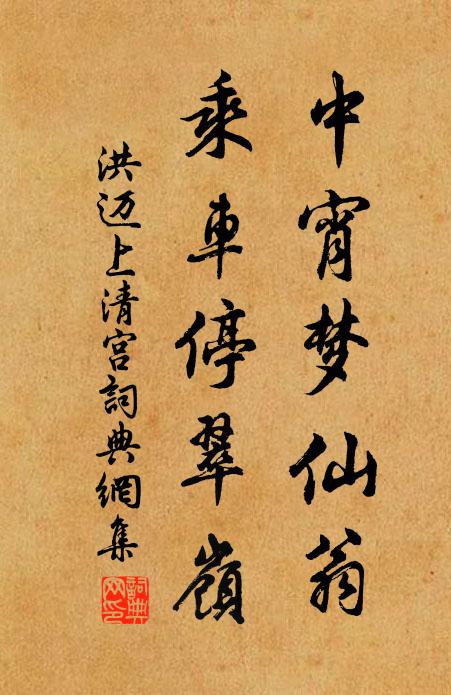 中宵梦仙翁
乘车停翠嶺
洪迈上清宫詞典網集
詞典网印